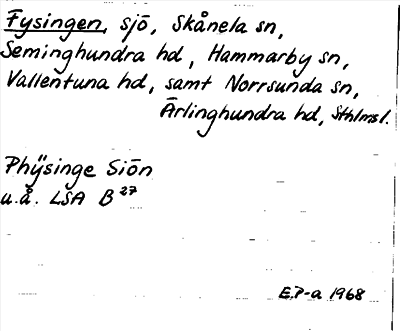 Fysingen, sjö, Skånela sn,
Seminghundra hd, Hammarby sn,
Vallentuna hd, samt Norrsunda sn,
Ärlinghundra hd, Sthlms l.
Phÿsinge Siön
u.å. LSA B 27
E.P-a 1968